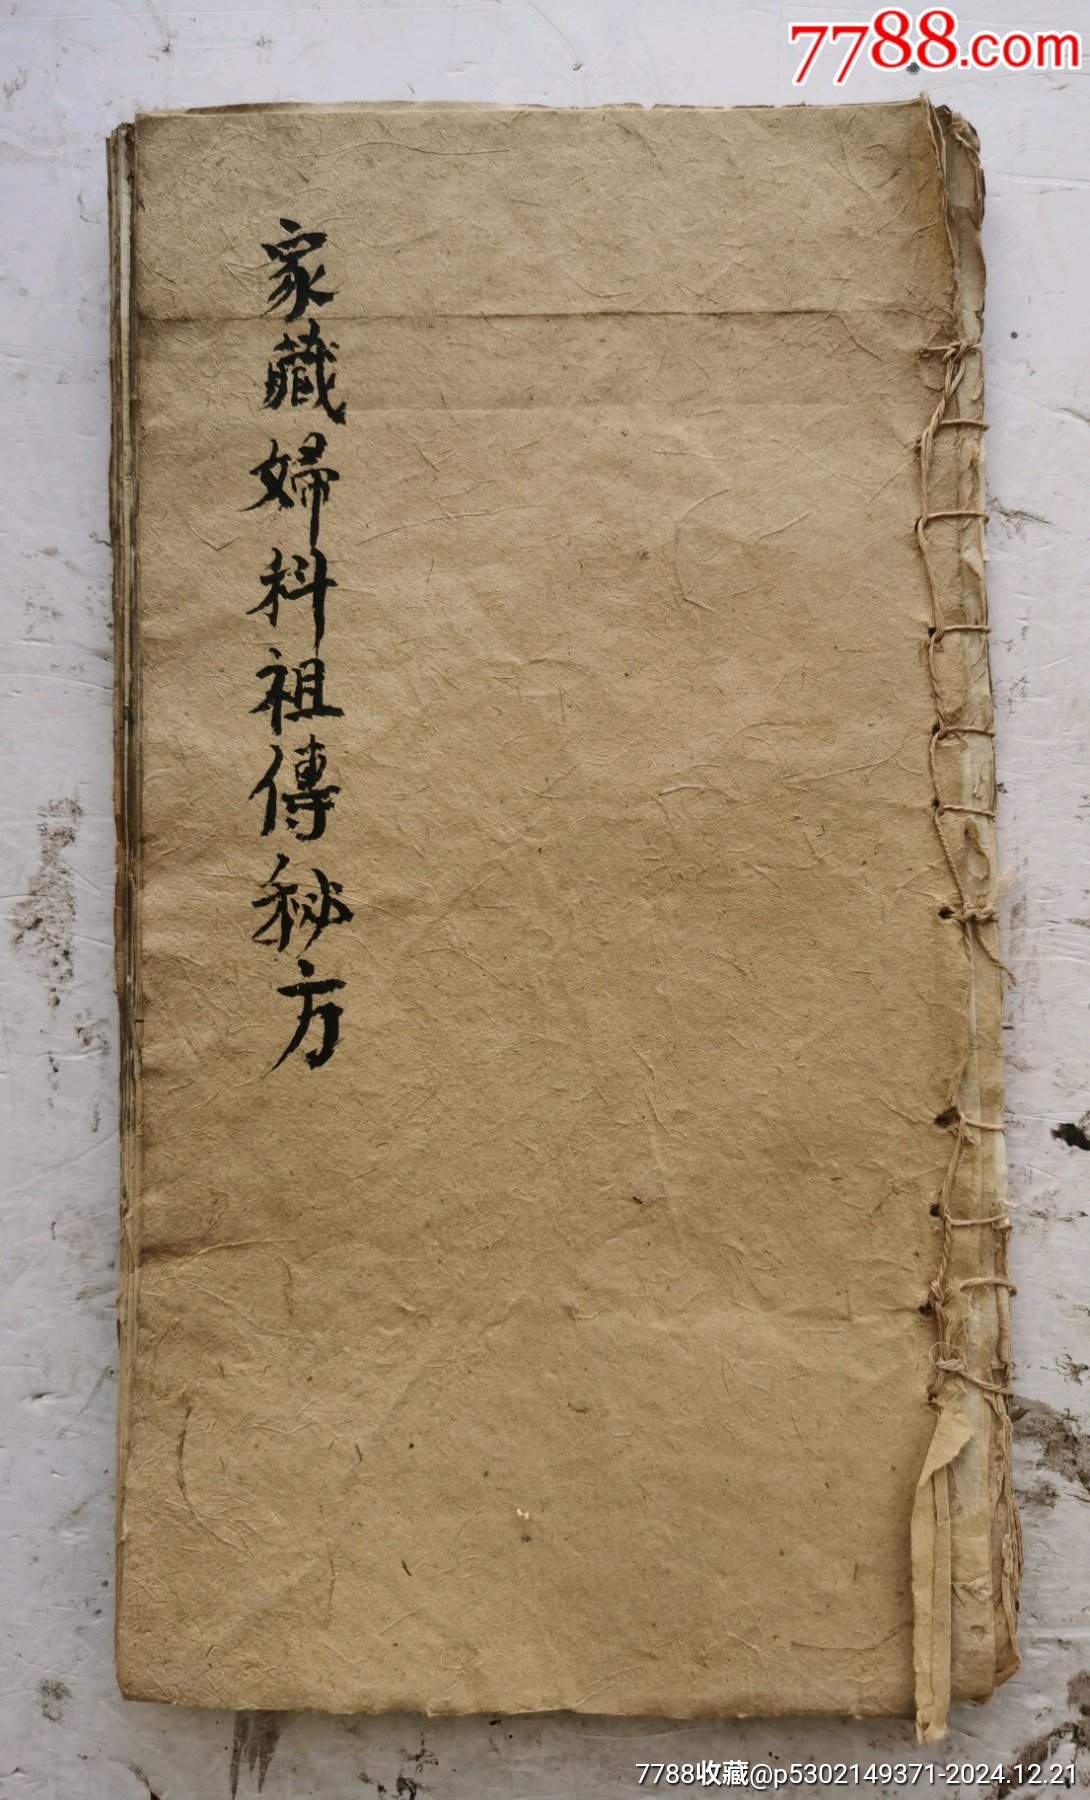 7788.com
家藏婦科祖傳秘方
7788收藏@p5302149371-2024.12.21